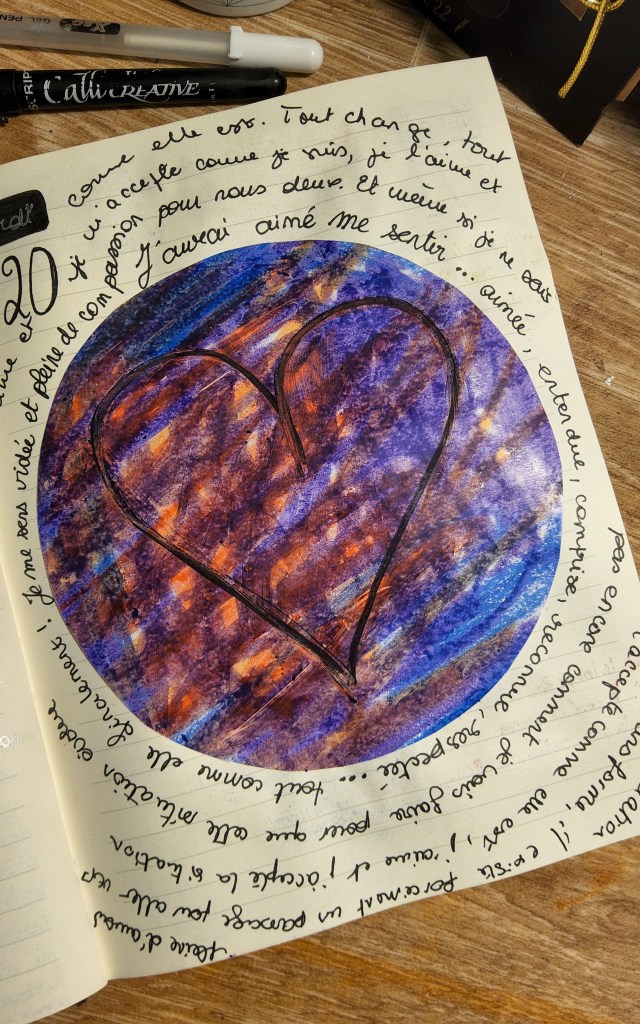 GEL PEN
Calli CREATIVE
20
J'aurai aimé me sentir... aimée, entendue, comprise, reconnue, respectée... tout comme elle finalement !
Je me sens vidée et pleine de compassion pour nous deux. Et même si je ne sais pas encore comment je vais faire pour que cette situation évolue
je m'accepte comme je suis, je l'aime et l'accepte comme elle est, j'aime et j'accepte la situation
comme elle est. Tout change, tout
forme, il existe forcément un passage pour aller vers
pleine d'amour